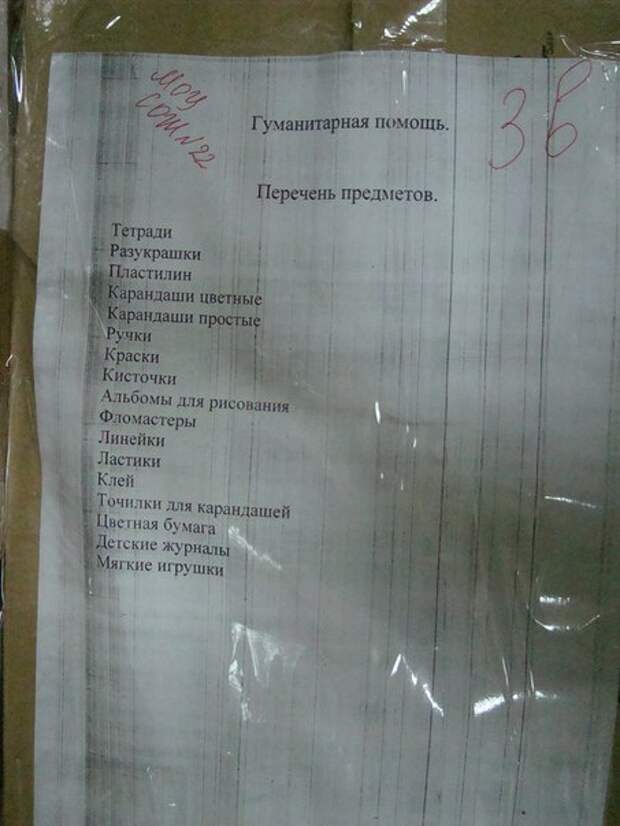 МОУ
СОШ №22
3 в
Гуманитарная помощь.
Перечень предметов.
Тетради
Разукрашки
Пластилин
Карандаши цветные
Карандаши простые
Ручки
Краски
Кисточки
Альбомы для рисования
Фломастеры
Линейки
Ластики
Клей
Точилки для карандашей
Цветная бумага
Детские журналы
Мягкие игрушки